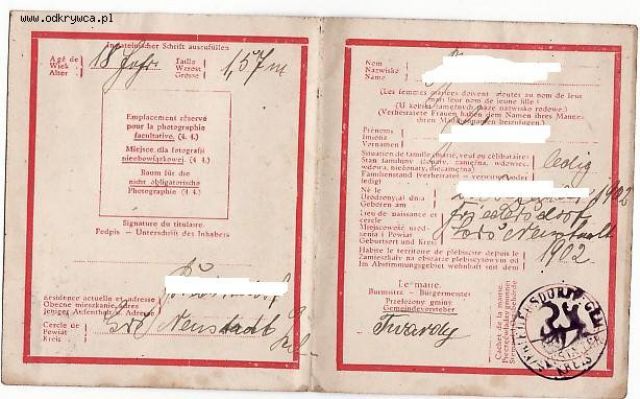 www.odkrywca.pl
In lateinischer Schrift auszufüllen
Agé de
Wiek
Alter
18 Jahr
Taille
Wzrost
Grösse
1,57 m
Emplacement réservé
pour la photographie
facultative. (4. 4.)
Miejsce dla fotografji
nieobowiązkowej. (4. 4.)
Raum für die
nicht obligatorische
Photographie (4. 4.)
Signature du titulaire.
Podpis — Unterschrift des Inhabers
Résidence actuelle et adresse
Obecne mieszkanie, adres
Jetziger Aufenthalt u. Adresse
Cercle de
Powiat
Kreis
Neustadt
Nom
Nazwisko
Name
(Les femmes mariées doivent ajouter au nom de leur
mari leur nom de jeune fille.)
(U kobiet zamężnych także nazwisko rodowe.)
(Verheiratete Frauen haben dem Namen ihres Mannes
ihren Mädchennamen beizufügen.)
Prénoms
Imiona
Vornamen
Situation de famille (marié, veuf ou célibataire)
Stan familijny (żonaty, zamężna, wdowiec,
wdowa, nieżonaty, niezamężna)
Familienstand (verheiratet, verwitwet oder
ledig)
ledig
Né le
Urodzony(a) dnia
Geboren am
1902
Lieu de naissance et
cercle
Miejscowość urodzenia i Powiat
Geburtsort und Kreis
Neustadt
Habite le territoire de plébiscite depuis le
Zamieszkały na obszarze plebiscytowym od
Im Abstimmungsgebiet wohnhaft seit dem
1902
Le maire.
Burmistrz — Bürgermeister
Przełożony gminy
Gemeindevorsteher
Twardy
Cachet de la mairie.
KREIS